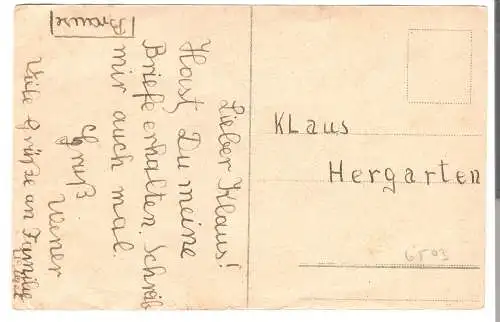 Lieber Klaus!
Hast Du meine
Briefe erhalten. Schreib
mir auch mal.
Gruß
Werner
Viele Grüße an Familie
KLaus
Hergarten
6503